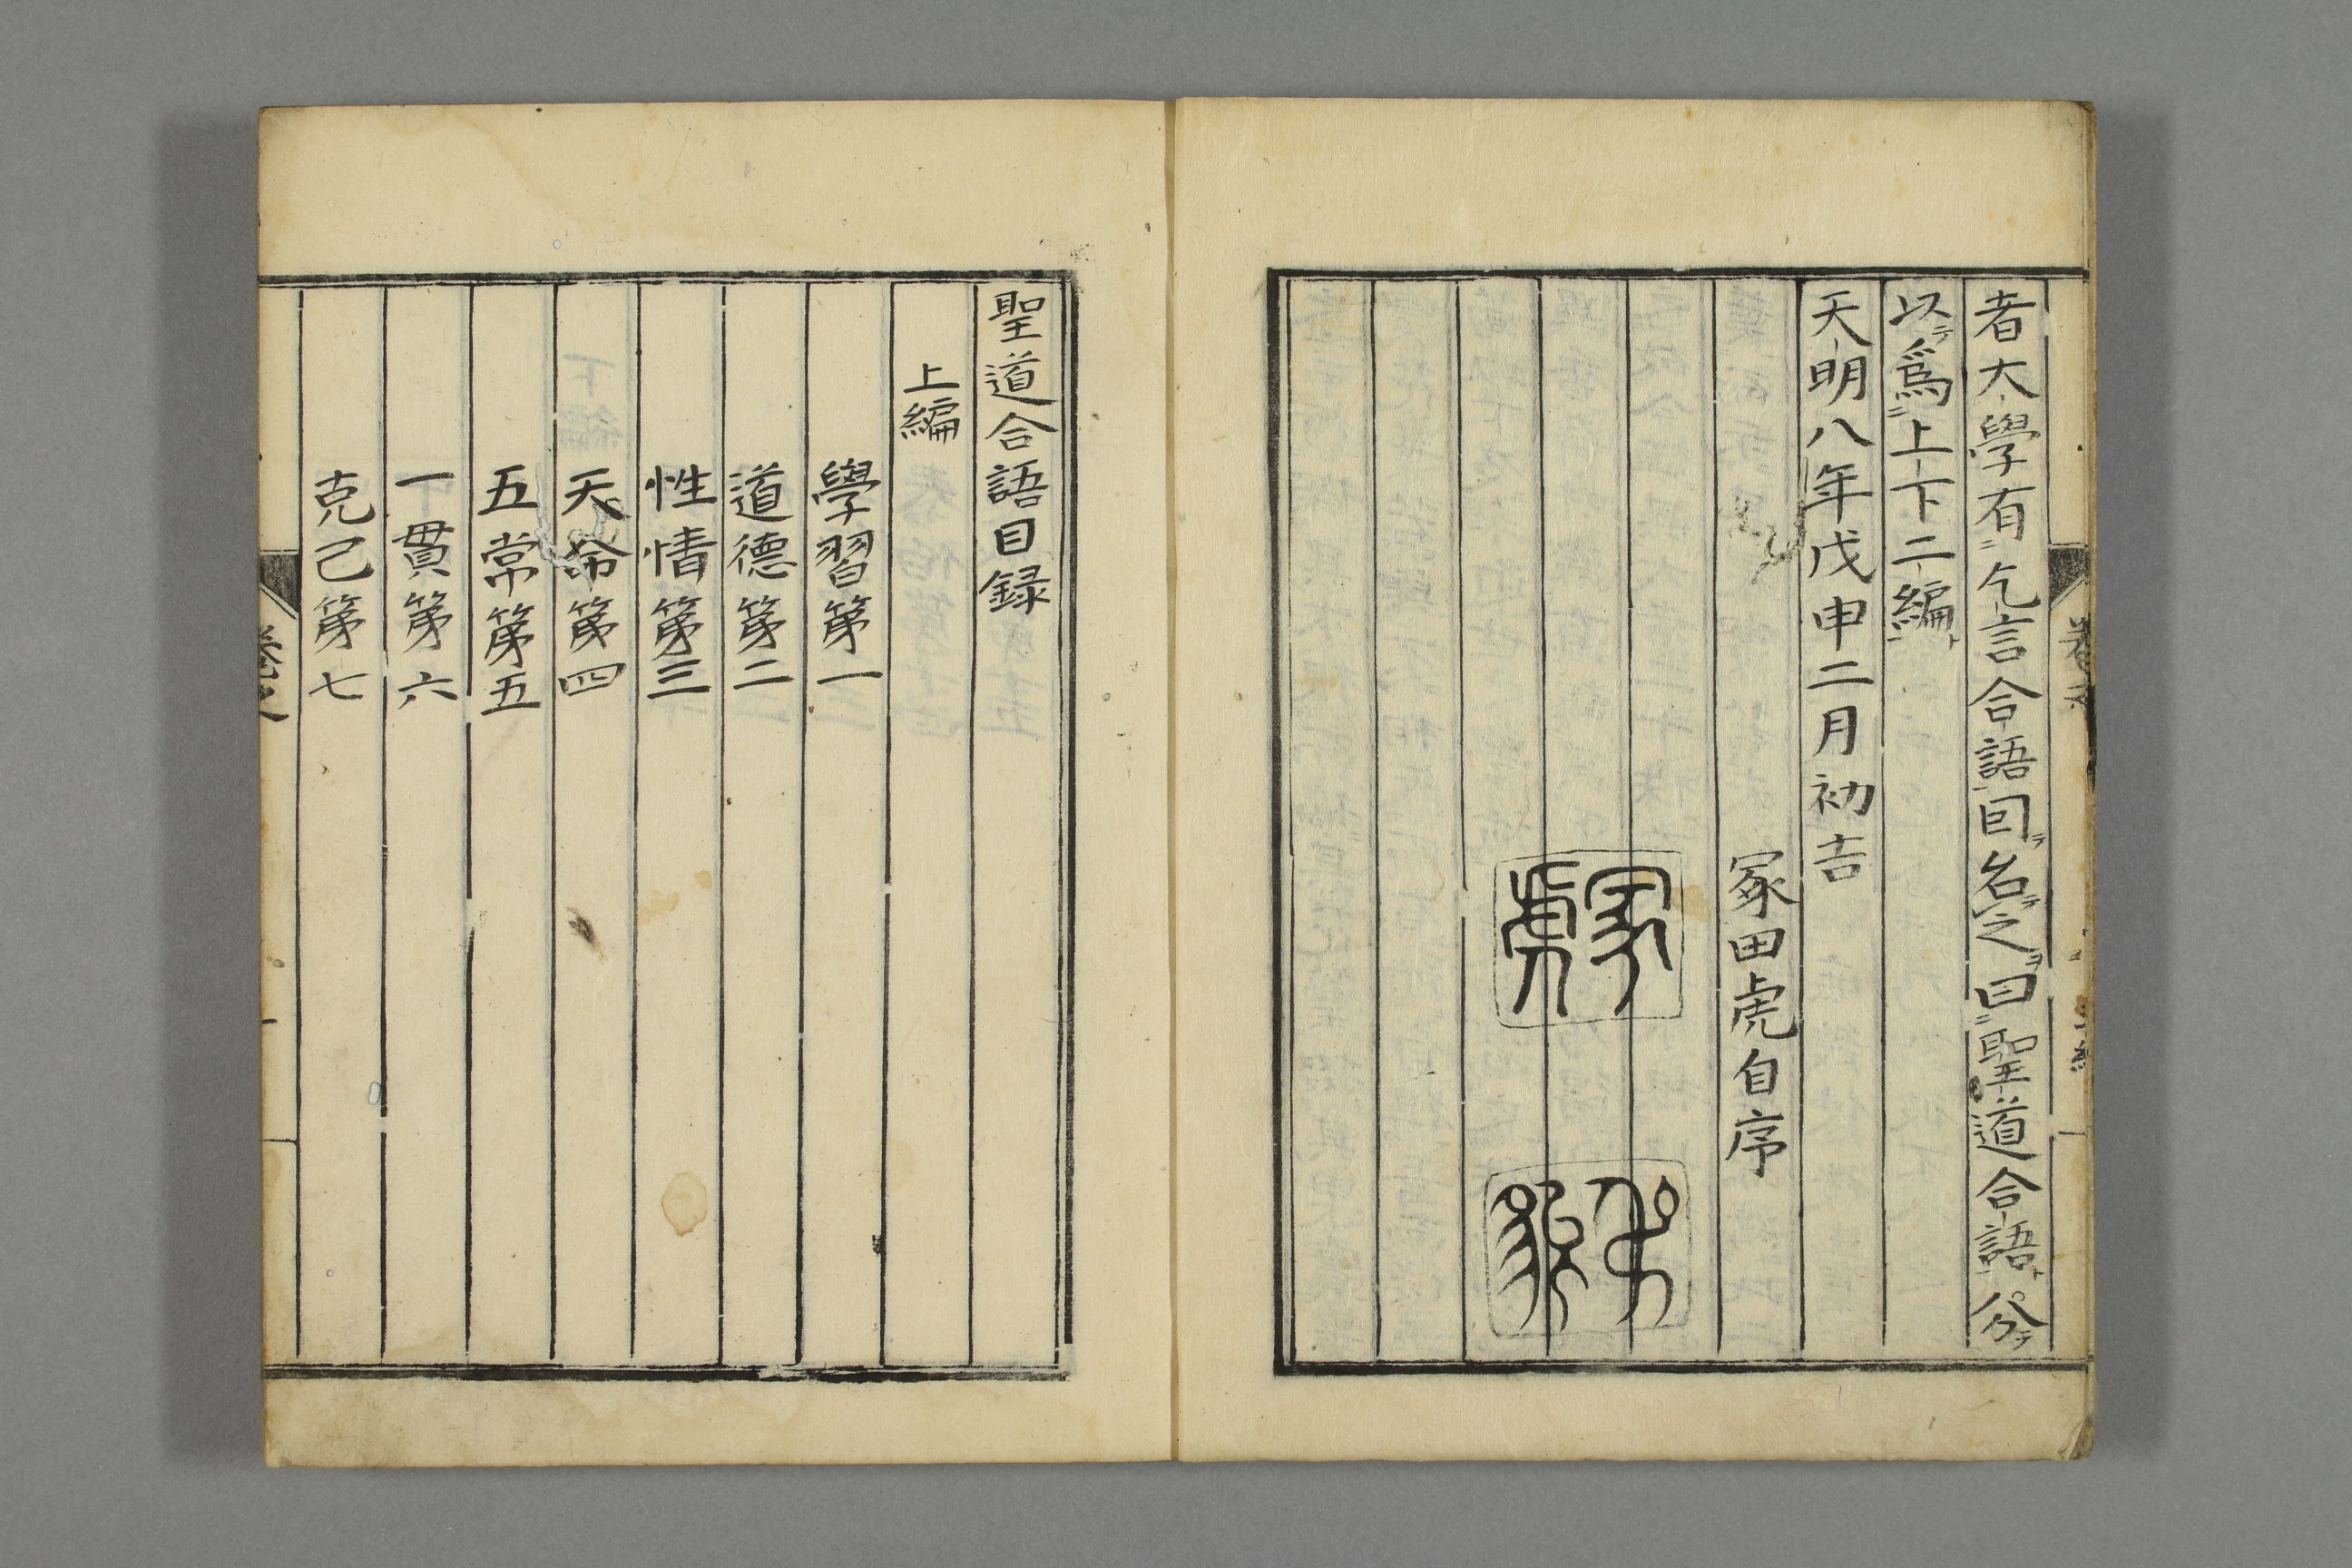 者大學有乞言合語因名之曰聖道合語分
以爲上下二編
天明八年戊申二月初吉
冢田虎自序
冢虎
聖道合語目録
上編
學習第一
道德第二
性情第三
天命第四
五常第五
一貫第六
克己第七